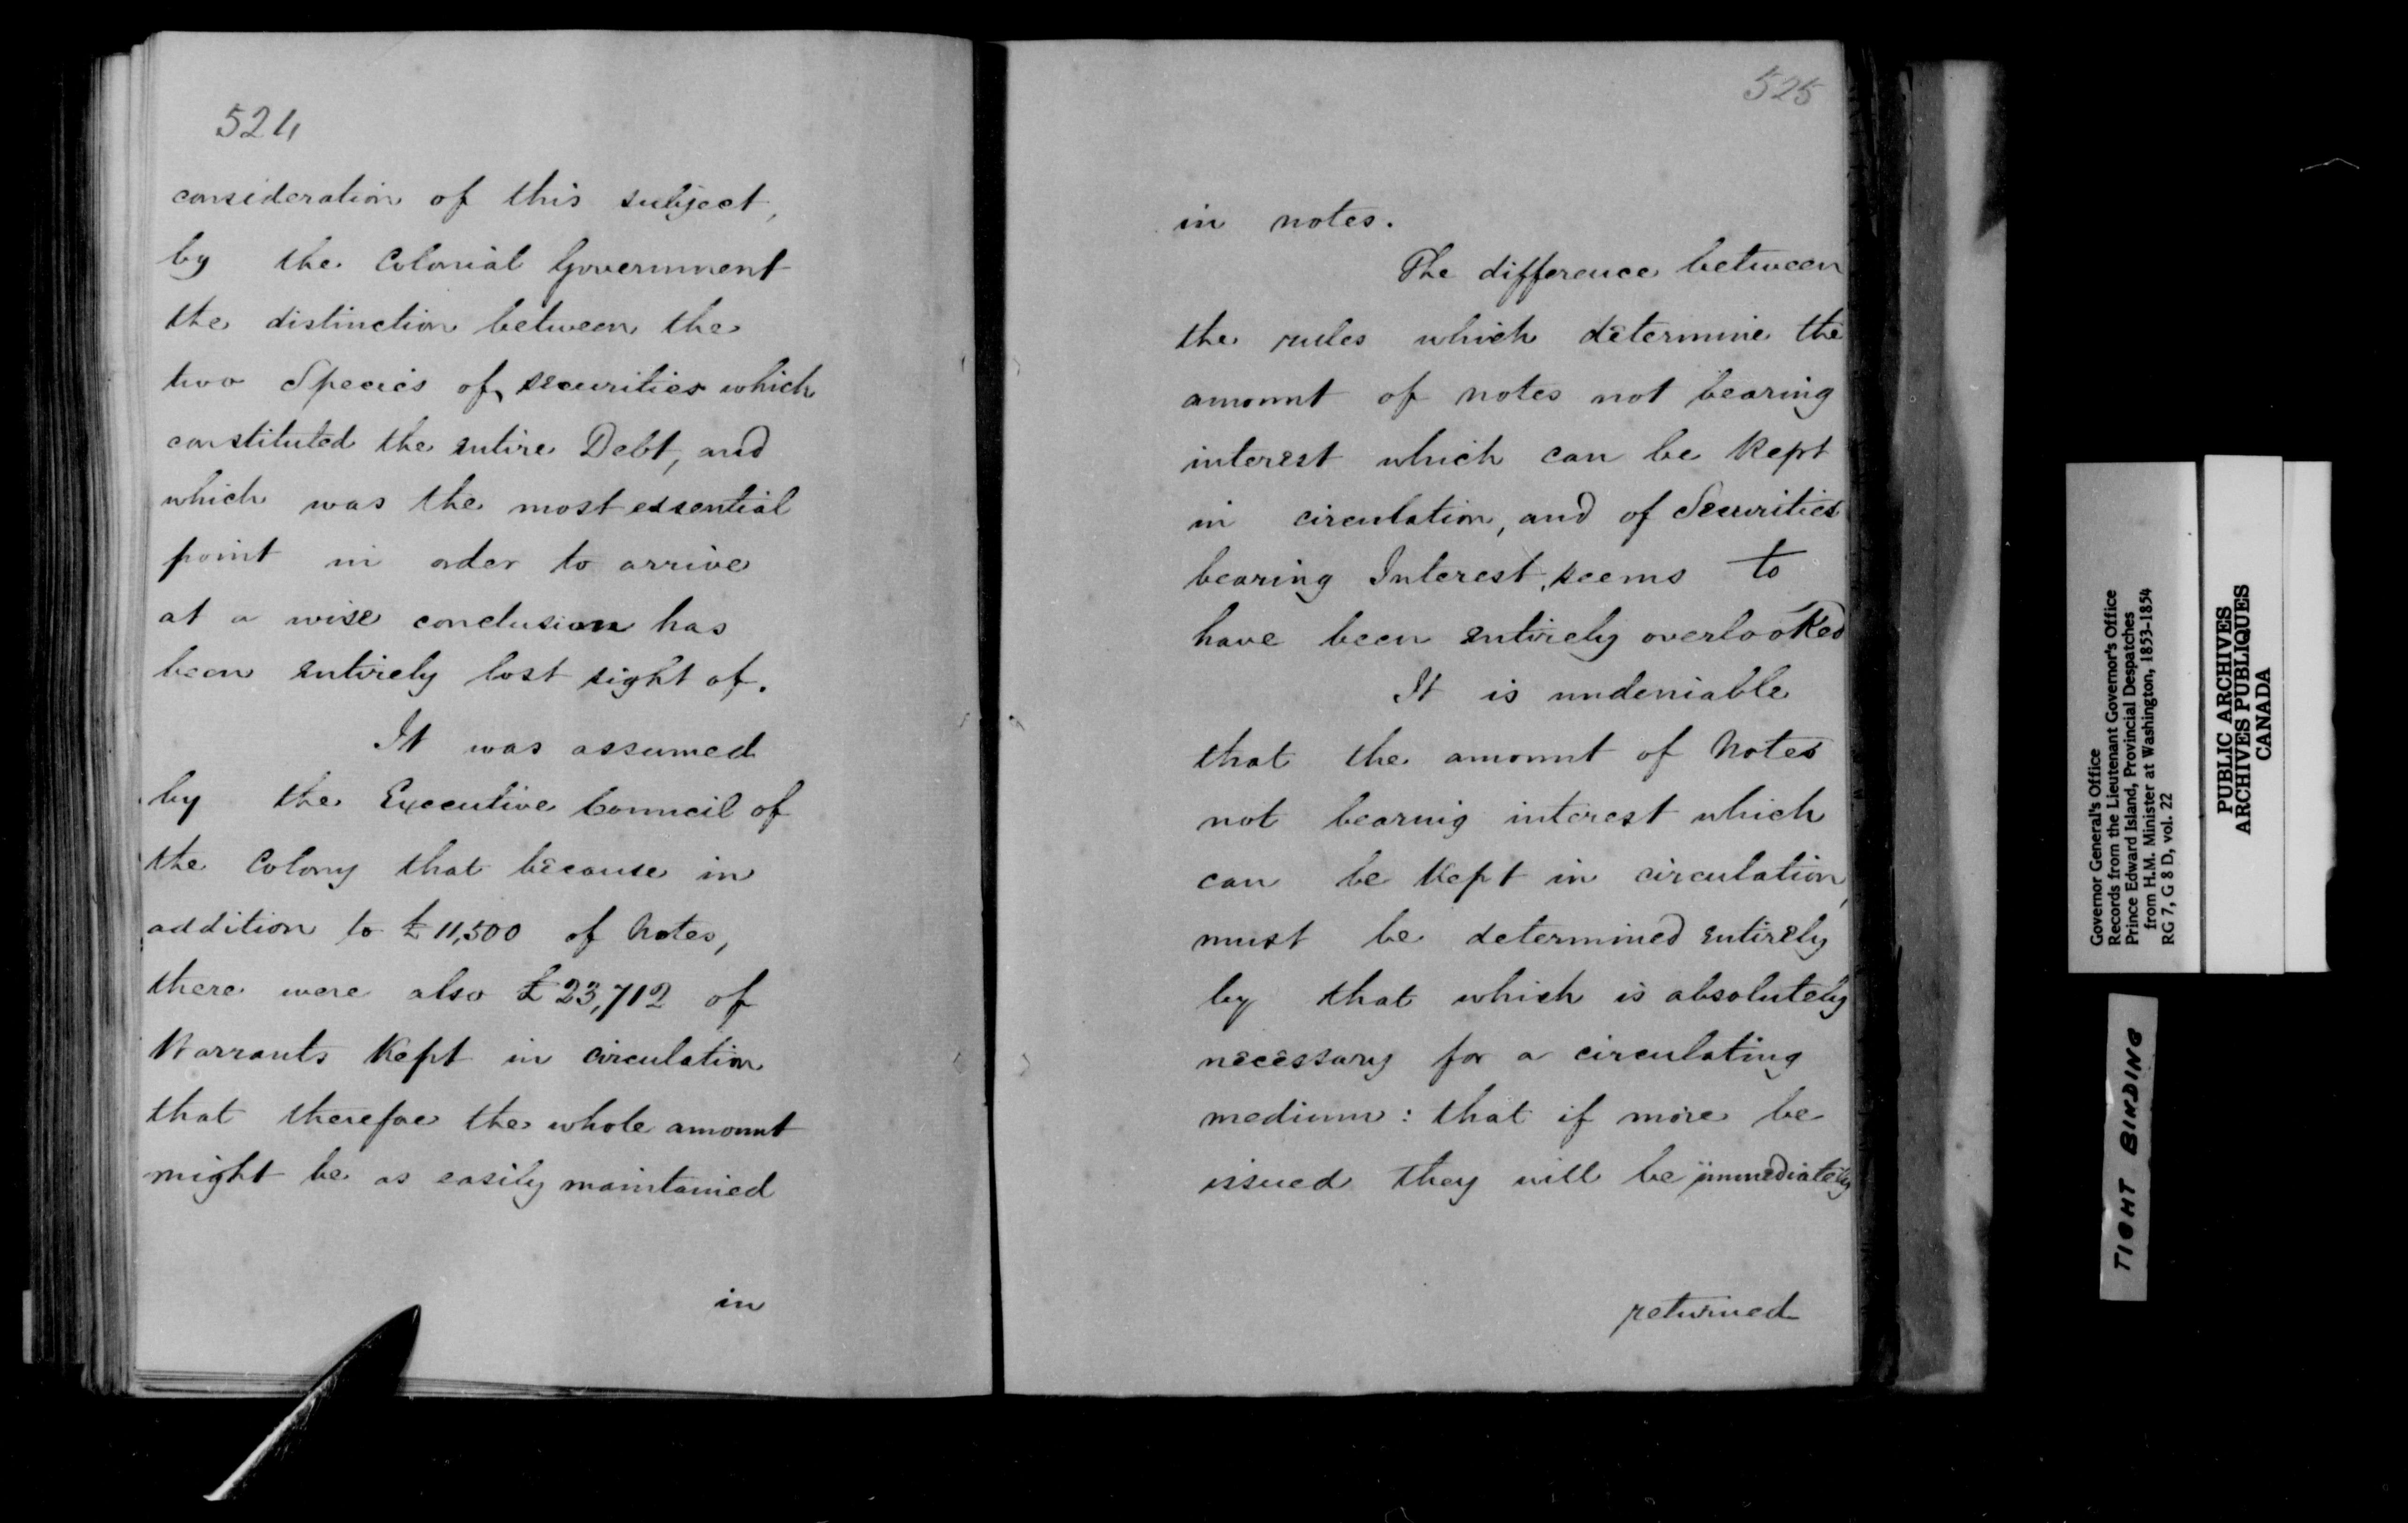 524
consideration of this subject,
by the Colonial Government
the distinction between the
two Species of securities which
constituted the entire Debt, and
which was the most essential
point in order to arrive
at a wise conclusion has
been entirely lost sight of.
It was assumed
by the Executive Council of
the Colony that because in
addition to £11,500 of Notes,
there were also £23,712 of
Warrants Kept in circulation
that therefore the whole amount
might be as easily maintained
in
525
in notes.
The difference between
the rules which determine the
amount of notes not bearing
interest which can be Kept
in circulation, and of Securities
bearing Interest, seems to
have been entirely overlooked
It is undeniable
that the amount of Notes
not bearing interest which
can be Kept in circulation,
must be determined entirely
by that which is absolutely
necessary for a circulating
medium: that if more be
issued they will be immediately
returned
Governor General's Office
Records from the Lieutenant Governor's Office
Prince Edward Island, Provincial Despatches
from H.M. Minister at Washington, 1853-1854
RG 7, G 8 D, vol. 22
PUBLIC ARCHIVES
ARCHIVES PUBLIQUES
CANADA
TIGHT BINDING